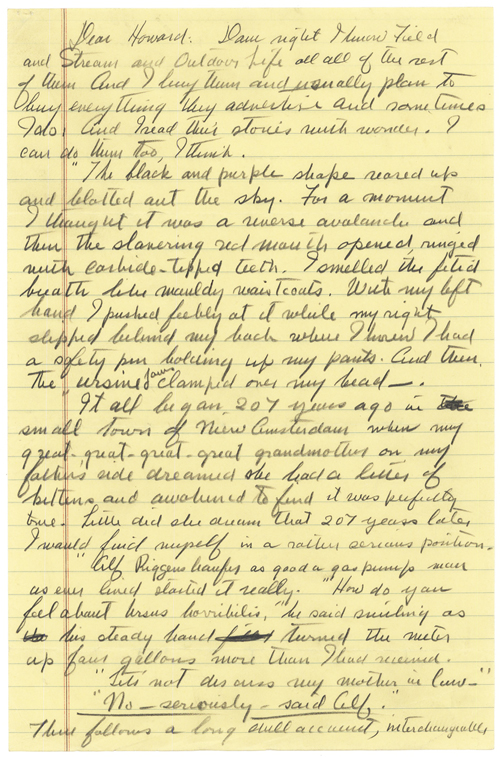 Dear Howard: Damn right I know Field
and Stream and Outdoor Life all all of the rest
of them And I buy them and usually plan to
buy everything they advertise and sometimes
I do. And I read their stories with wonder. I
can do them too, I think.
"The black and purple shape reared up
and blotted out the sky. For a moment
I thought it was a reverse avalanche and
then the slavering red mouth opened, ringed
with carbide-tipped teeth. I smelled the fetid
breath like mouldy waistcoats. With my left
hand I pushed feebly at it while my right
slipped behind my back where I knew I had
a safety pin holding up my pants. And then
the ursine jaws clamped over my head—.
It all began 207 years ago in
small town of New Amsterdam when my
great-great-great-great grandmother on my
father's side dreamed she had a litter of
kittens and awakened to find it was perfectly
true. Little did she dream that 207 years later
I would find myself in a rather serious position.
"Alf as good a gas pump man
as ever lived started it really. "How do you
feel about Ursus horribilis," he said smiling as
his steady hand turned the meter
up four gallons more than I had received.
"Let's not discuss my mother in law—"
"No—seriously—said Alf."
There follows a long dull account, interchangeable